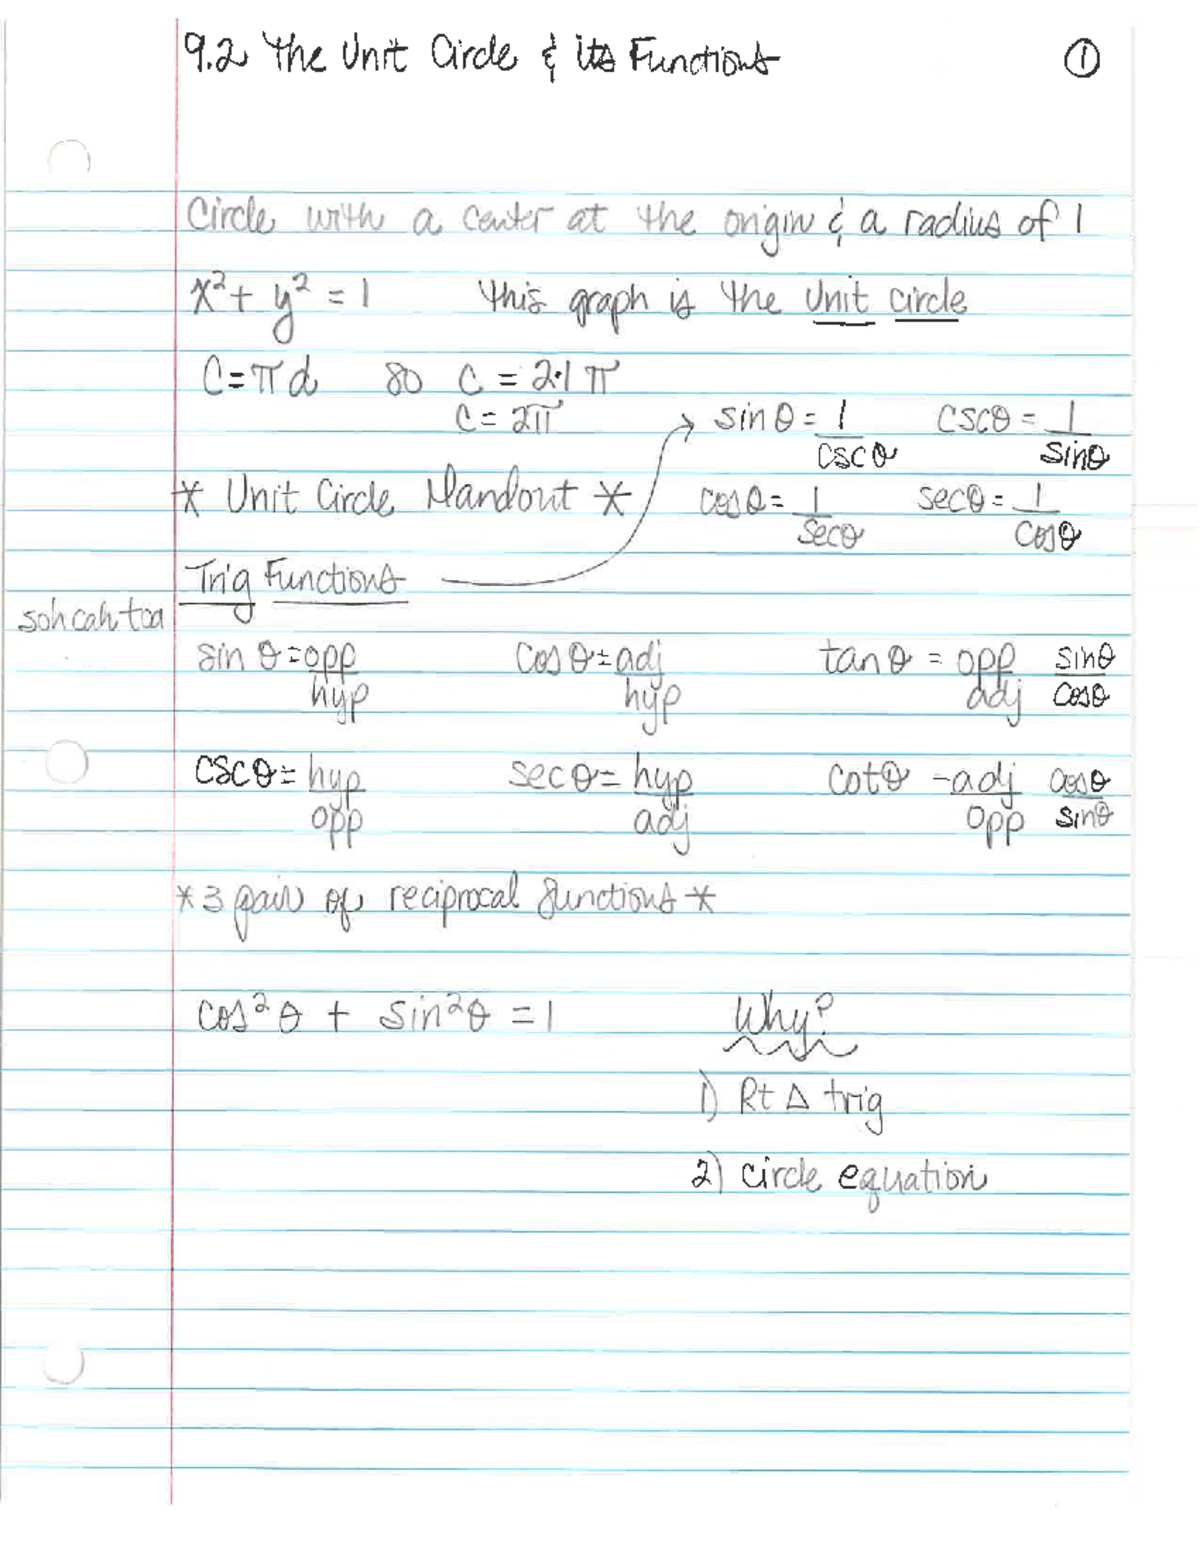 9.2 The Unit Circle & Its Functions ①
Circle with a center at the origin & a radius of 1
x² + y² = 1 this graph is the Unit Circle
C = πd so C = 2·1π
C = 2π
sin θ = 1/cscθ cscθ = 1/sinθ
* Unit Circle Handout * cosθ = 1/secθ secθ = 1/cosθ
Trig Functions
sohcahtoa
sin θ = opp/hyp cos θ = adj/hyp tan θ = opp/adj sinθ/cosθ
cscθ = hyp/opp secθ = hyp/adj cotθ - adj/opp cosθ/sinθ
* 3 pair of reciprocal functions *
cos²θ + sin²θ = 1 Why?
1) Rt △ trig
2) circle equation